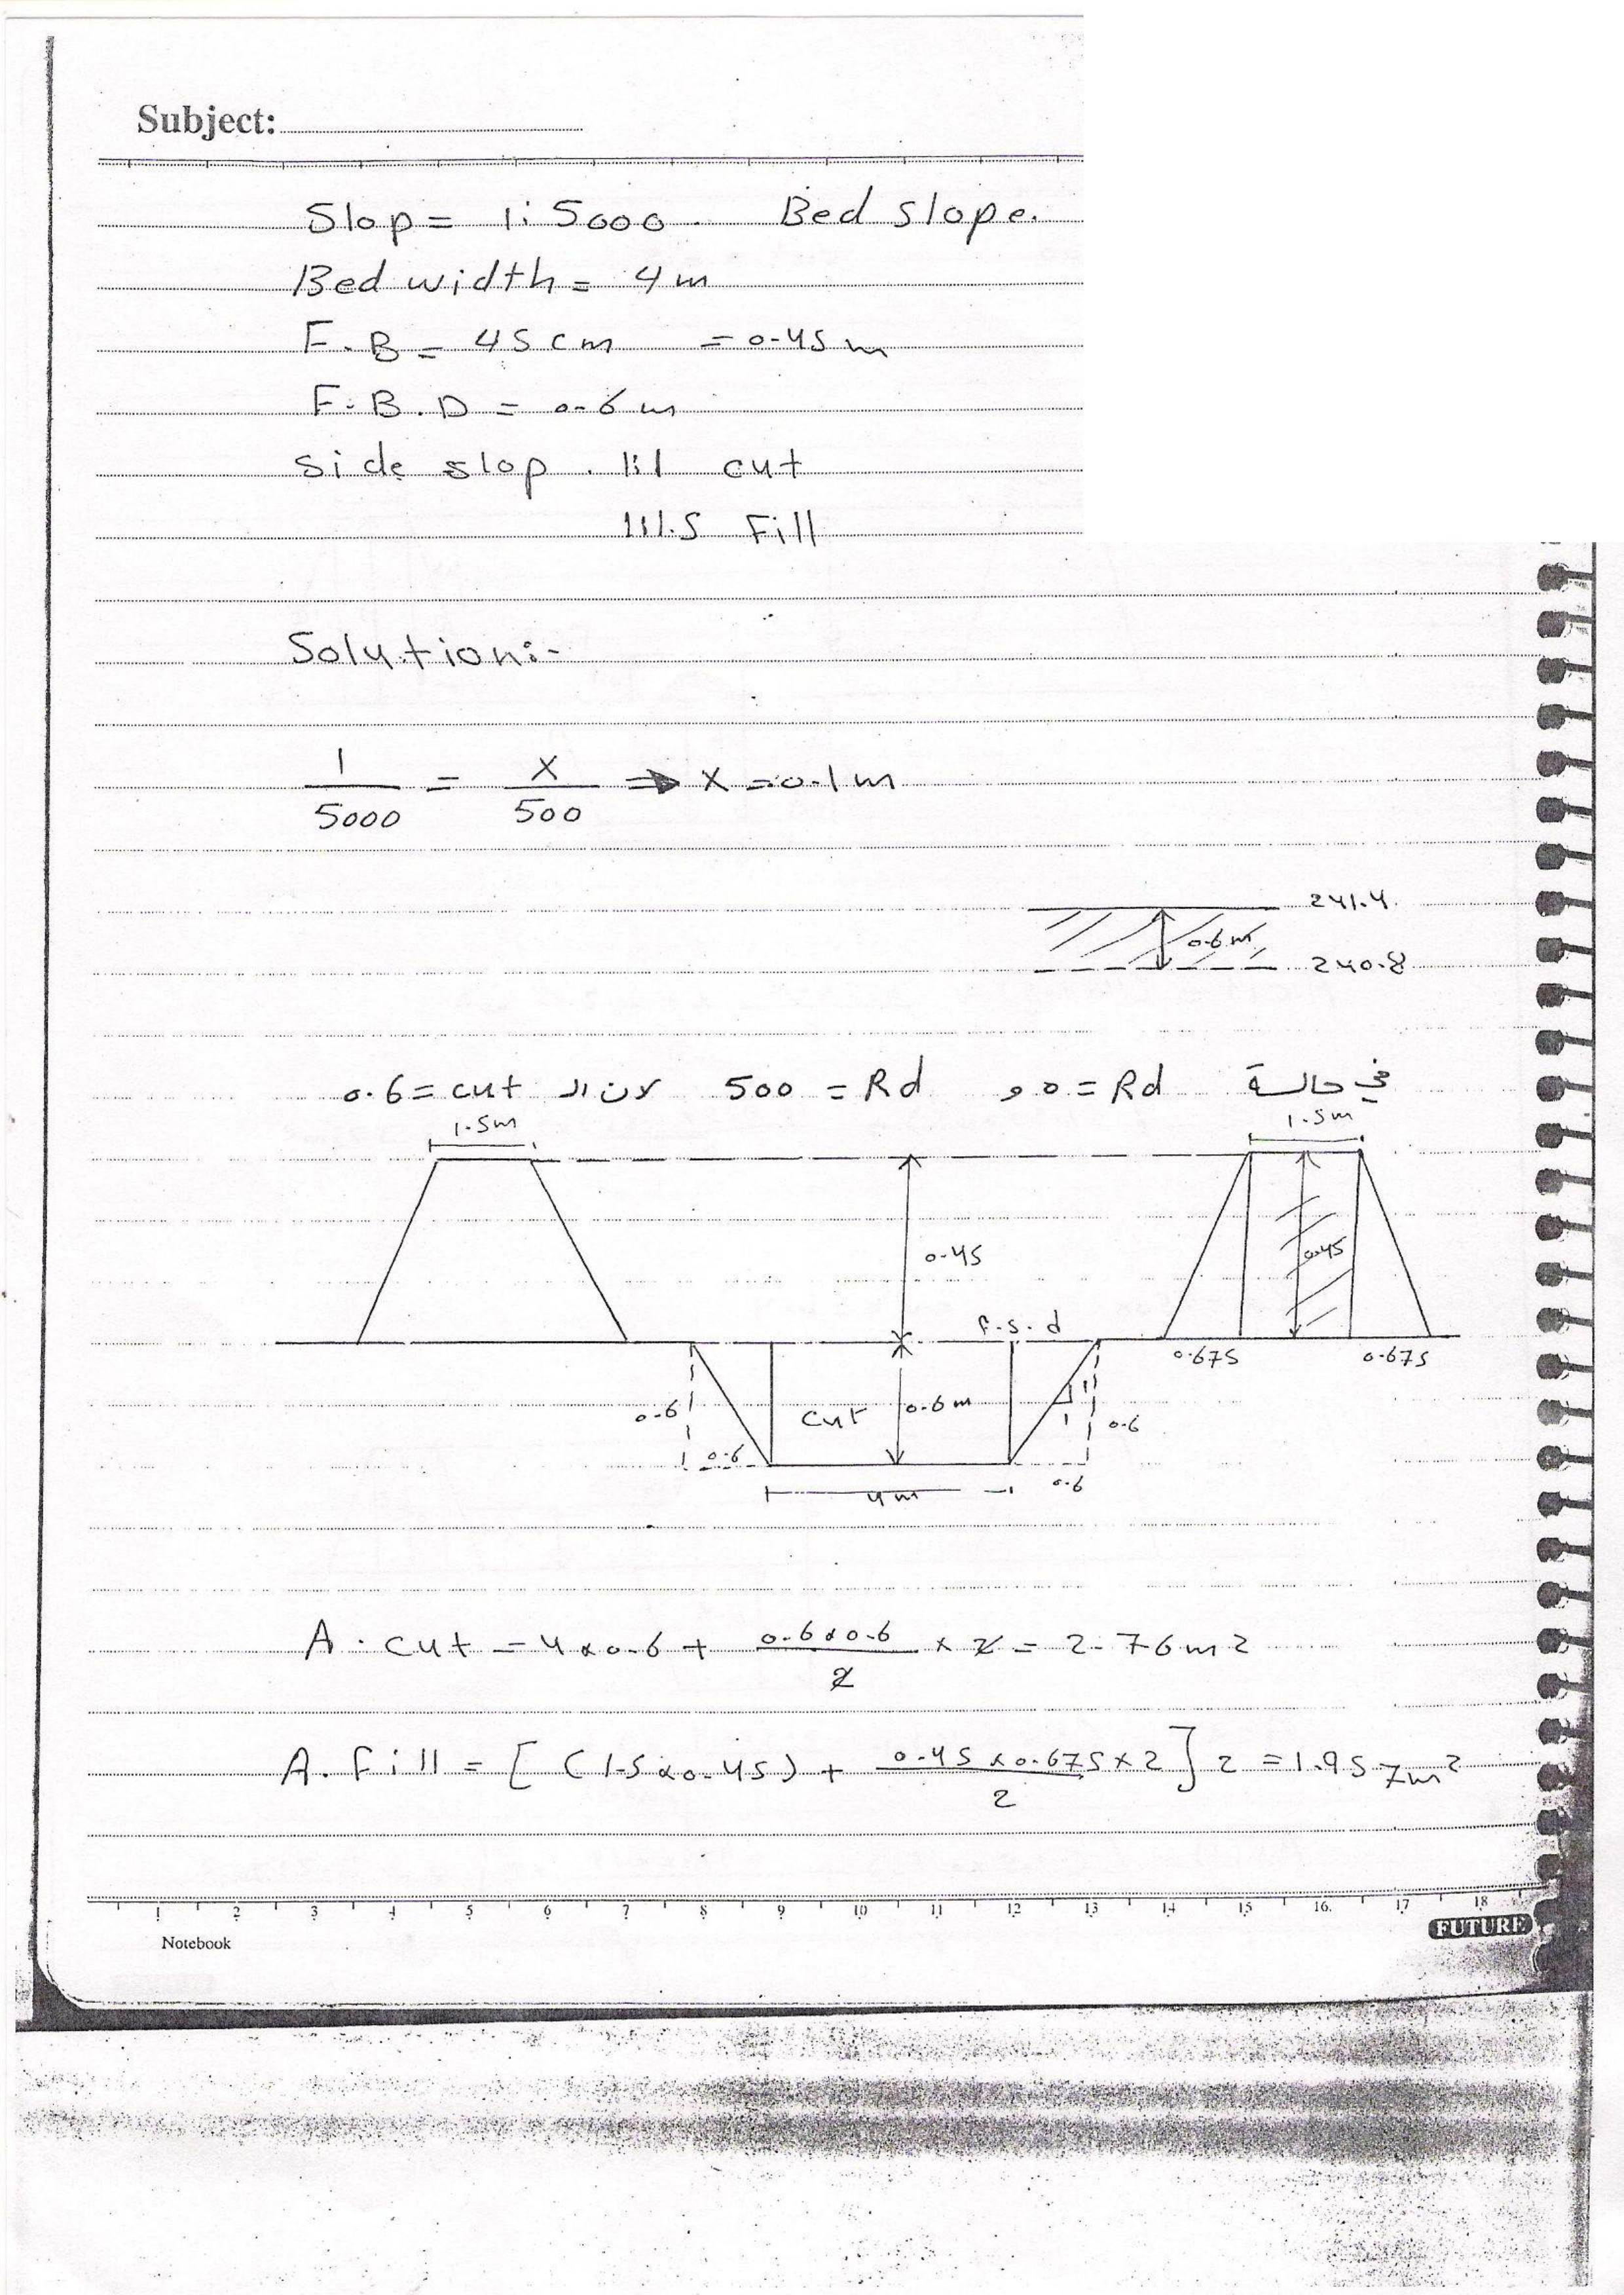 Subject:
Slop = 1:5000 Bed slope.
Bed width = 4m
F.B = 45cm = 0.45m
F.B.D = 0.6m
side slop . 1:1 cut
1:1.5 Fill
Solution:-
1/5000 = X/500 ⇒ X = 0.1m
241.4
0.6m
240.8
في حالة Rd = 0 و Rd = 500 لان ال cut = 0.6
1.5m 1.5m
0.45 0.45
F.S.d
0.675 0.675
0.6 cut 0.6m 1 1 0.6
0.6 4m 0.6
A. cut = 4x0.6 + 0.6x0.6/2 x 2 = 2.76m2
A. Fill = [(1.5x0.45) + 0.45x0.675x2/2] 2 = 1.957m2
1 2 3 4 5 6 7 8 9 10 11 12 13 14 15 16. 17 18
Notebook FUTURE